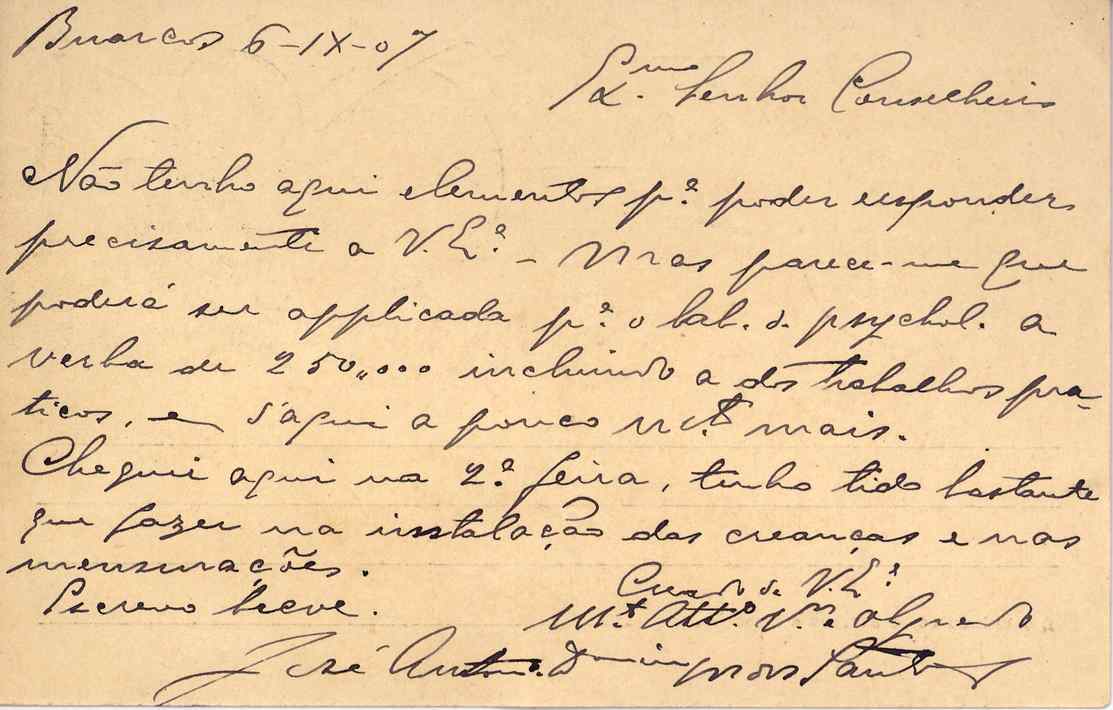 Buarcos 6-IX-07
Exmo. Senhor Conselheiro
Não tenho aqui elementos pª. poder responder
precisamente a V. Exª. - Mas parece-me que
poderá ser applicada pª. o lab. de psychol. a
verba de 250,,000 incluindo a dos trabalhos pra-
ticos, e d'aqui a pouco mto. mais.
Cheguei aqui na 2ª. feira, tenho tido bastante
que fazer na instalação das creanças e nas
mensurações.
Escrevo breve.
Creado de V. Exª.
Mto. Atto. Vor. e obgrdo
José Antonio Santos